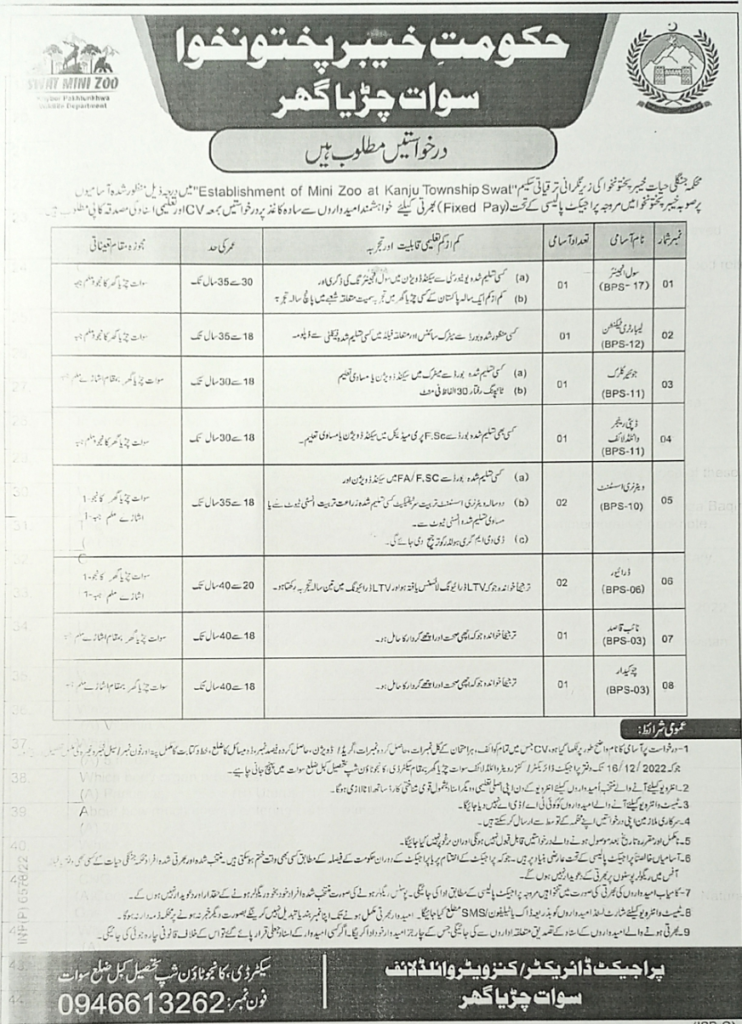 حکومتِ خیبر پختونخوا
سوات چڑیا گھر
SWAT MINI ZOO
Khyber Pakhtunkhwa
Wildlife Department
درخواستیں مطلوب ہیں
محکمہ جنگلی حیات خیبر پختونخوا کی زیر نگرانی ترقیاتی سکیم "Establishment of Mini Zoo at Kanju Township Swat" میں درجہ ذیل منظور شدہ آسامیوں
پر صوبہ خیبر پختونخوا میں مروجہ پراجیکٹ پالیسی کے تحت (Fixed Pay) بھرتی کیلئے خواہشمند امیدواروں سے سادہ کاغذ پر درخواستیں بمعہ CV اور تعلیمی اسناد کی مصدقہ کاپی مطلوب ہیں
نمبر شمار نام آسامی تعداد آسامی کم از کم تعلیمی قابلیت اور تجربہ عمر کی حد مجوزہ مقام تعیناتی
01 سول انجینئر (BPS-17) 01 (a) کسی تسلیم شدہ یونیورسٹی سے سیکنڈ ڈویژن میں سول انجینئرنگ کی ڈگری اور 30 سے 35 سال تک سوات چڑیا گھر کانجو
(b) کم از کم ایک سالہ پاکستان کے کسی چڑیا گھر میں تجربہ سمیت متعلقہ شعبے میں پانچ سالہ تجربہ
02 لیبارٹری ٹیکنیشن (BPS-12) 01 کسی منظور شدہ بورڈ سے میٹرک سائنس اور متعلقہ فیلڈ میں کسی تسلیم شدہ فیکلٹی سے ڈپلومہ۔ 18 سے 35 سال تک سوات چڑیا گھر کانجو
03 جونیئر کلرک (BPS-11) 01 (a) کسی تسلیم شدہ بورڈ سے میٹرک میں سیکنڈ ڈویژن یا مساوی تعلیم 18 سے 30 سال تک سوات چڑیا گھر بمقام
(b) ٹائپنگ رفتار 30 الفاظ فی منٹ
04 ڈپٹی رینجر وائلڈ لائف (BPS-11) 01 کسی بھی تسلیم شدہ بورڈ سے F.Sc پری میڈیکل میں سیکنڈ ڈویژن یا مساوی تعلیم۔ 18 سے 30 سال تک سوات چڑیا گھر کانجو
05 ویٹرنری اسسٹنٹ (BPS-10) 02 (a) کسی تسلیم شدہ بورڈ سے FA/F.SC میں سیکنڈ ڈویژن اور 18 سے 35 سال تک سوات چڑیا گھر کانجو-1
(b) دو سالہ ویٹرنری اسسٹنٹ تربیت سرٹیفکیٹ کسی تسلیم شدہ زراعت تربیت انسٹی ٹیوٹ سے یا
مساوی تسلیم شدہ انسٹی ٹیوٹ سے۔
(c) ڈی وی ایم ڈگری ہولڈر کو ترجیح دی جائے گی۔
06 ڈرائیور (BPS-06) 02 ترجیحاً خواندہ جو کہ LTV ڈرائیونگ لائسنس یافتہ ہو اور LTV ڈرائیونگ میں تین سالہ تجربہ رکھتا ہو۔ 20 سے 40 سال تک سوات چڑیا گھر کانجو-1
07 نائب قاصد (BPS-03) 01 ترجیحاً خواندہ جو کہ اچھی صحت اور اچھے کردار کا حامل ہو۔ 18 سے 40 سال تک سوات چڑیا گھر بمقام
08 چوکیدار (BPS-03) 01 ترجیحاً خواندہ جو کہ اچھی صحت اور اچھے کردار کا حامل ہو۔ 18 سے 40 سال تک سوات چڑیا گھر بمقام
عمومی شرائط:
1- درخواست پر آسامی کا نام واضح طور پر لکھا گیا ہو، CV جس میں تمام کوائف، ہر امتحان کے کل نمبرات، حاصل کردہ نمبرات، گریڈ/ڈویژن، حاصل کردہ فیصد نمبر، ڈومیسائل کا ضلع، خط و کتابت کا مکمل پتہ اور فون نمبر/
جو کہ 16/12/2022 تک دفتر پراجیکٹ ڈائریکٹر/کنزرویٹر وائلڈ لائف سوات چڑیا گھر، بمقام سیکٹر ڈی، کانجو ٹاؤن شپ تحصیل کبل ضلع سوات میں پہنچ جانی چاہیے۔
2- انٹرویو کیلئے آنے والے منتخب اُمیدواروں کیلئے انٹرویو کے دن اپنی اصلی تعلیمی و دیگر اسناد بشمول قومی شناختی کارڈ ساتھ لانا لازمی ہوگا۔
3- ٹیسٹ و انٹرویو کیلئے آنے والے امیدواروں کو کوئی ٹی اے/ڈی اے نہیں دیا جائیگا۔
4- سرکاری ملازمین اپنی درخواستیں اپنے محکمہ کے توسط سے ارسال کر سکتے ہیں۔
5- نامکمل اور مقررہ تاریخ کے بعد موصول ہونے والے درخواستیں قابل قبول نہیں ہونگی اور ان پر غور نہیں کیا جائیگا۔
6- آسامیاں خالصتاً پراجیکٹ پالیسی کے تحت عارضی بنیاد پر ہیں۔ جو کہ پراجیکٹ کے اختتام پر یا پراجیکٹ کے دوران حکومت کے فیصلہ کے مطابق کسی بھی وقت ختم ہو سکتی ہیں۔ منتخب شدہ اور بھرتی شدہ افراد دفتر جنگلی حیات کے کسی بھی
آفس میں ریگولر پوسٹوں پر بھرتی کے دعویدار نہیں ہوں گے۔
7- کامیاب امیدواروں کی بھرتی کی صورت میں تنخواہیں مروجہ پراجیکٹ پالیسی کے مطابق ادا کی جائیگی۔ پوسٹیں ریگولر ہونے کی صورت منتخب شدہ افراد خود بخود ریگولر ہونے کے حقدار اور دعویدار نہیں ہوں گے۔
8- ٹیسٹ و انٹرویو کیلئے شارٹ لسٹڈ امیدواروں کو بذریعہ ڈاک یا ٹیلیفون/SMS مطلع کیا جائیگا۔ امیدوار بھرتی مکمل ہونے تک اپنا نمبر بند یا تبدیل نہیں کریں گے بصورت دیگر خبر نہ ہونے پر محکمہ ذمہ دار نہ ہوگا۔
9- بھرتی ہونے والے امیدواروں کے اسناد کے تصدیق متعلقہ اداروں سے کی جائیگی جس کے چارجز امیدوار خود ادا کریگا۔ اگر کسی امیدوار کے اسناد جعلی قرار پائے گئے تو اس کے خلاف قانونی چارہ جوئی کی جائیگی۔
INF(P) 6578/22
پراجیکٹ ڈائریکٹر/کنزرویٹر وائلڈ لائف
سوات چڑیا گھر
سیکٹر ڈی، کانجو ٹاؤن شپ تحصیل کبل ضلع سوات
فون نمبر: 0946613262